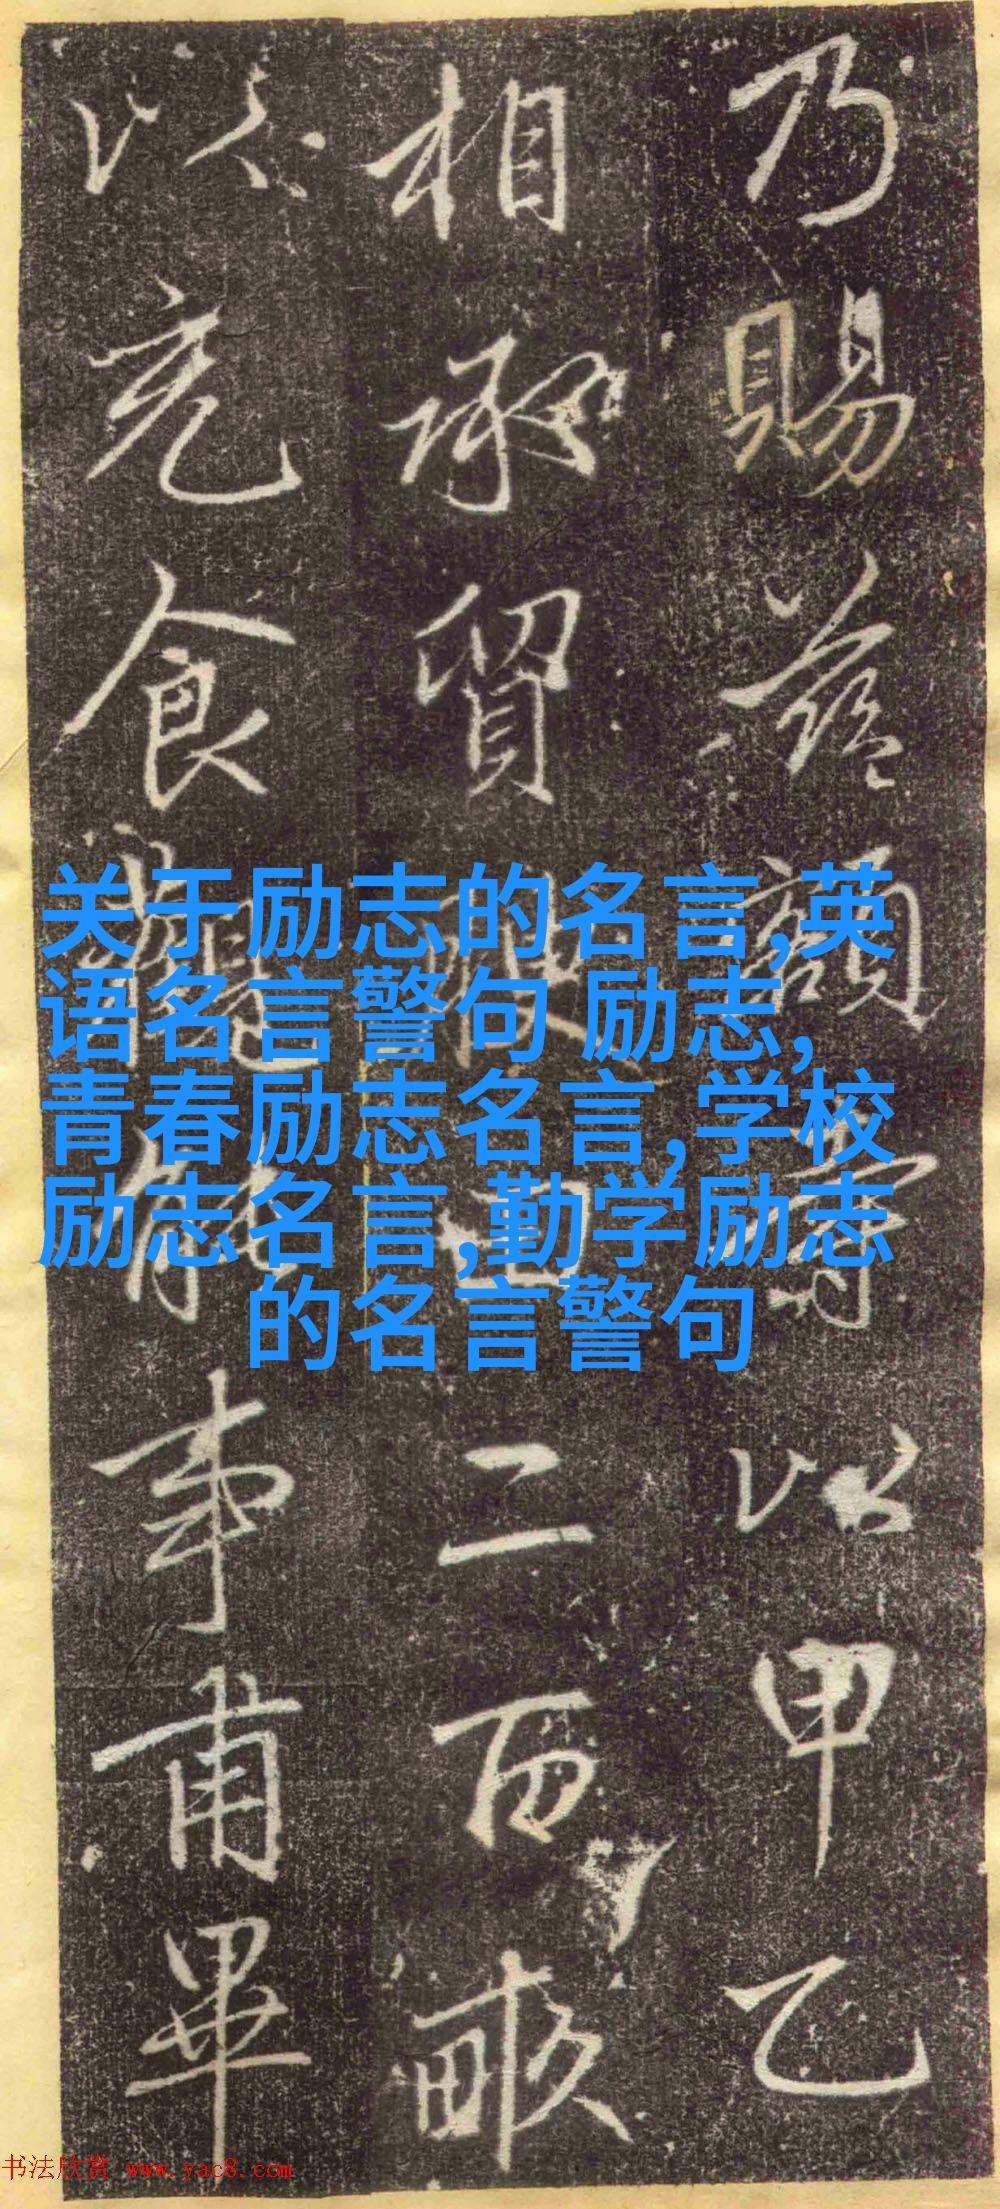 乃賜額以甲乙
相承貿二百畝
以充食事甫畢
关于励志的名言,英
语名言警句 励志,
青春励志名言,学校
励志名言,勤学励志
的名言警句
书法欣赏 www.yac8.com